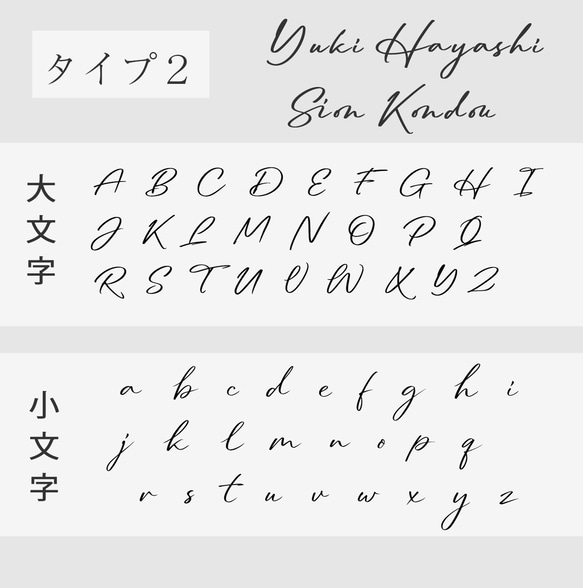 タイプ2
Yuki Hayashi
Sion Kondou
大文字
A B C D E F G H I
J K L M N O P Q
R S T U V W X Y Z
小文字
a b c d e f g h i
j k l m n o p q
r s t u v w x y z